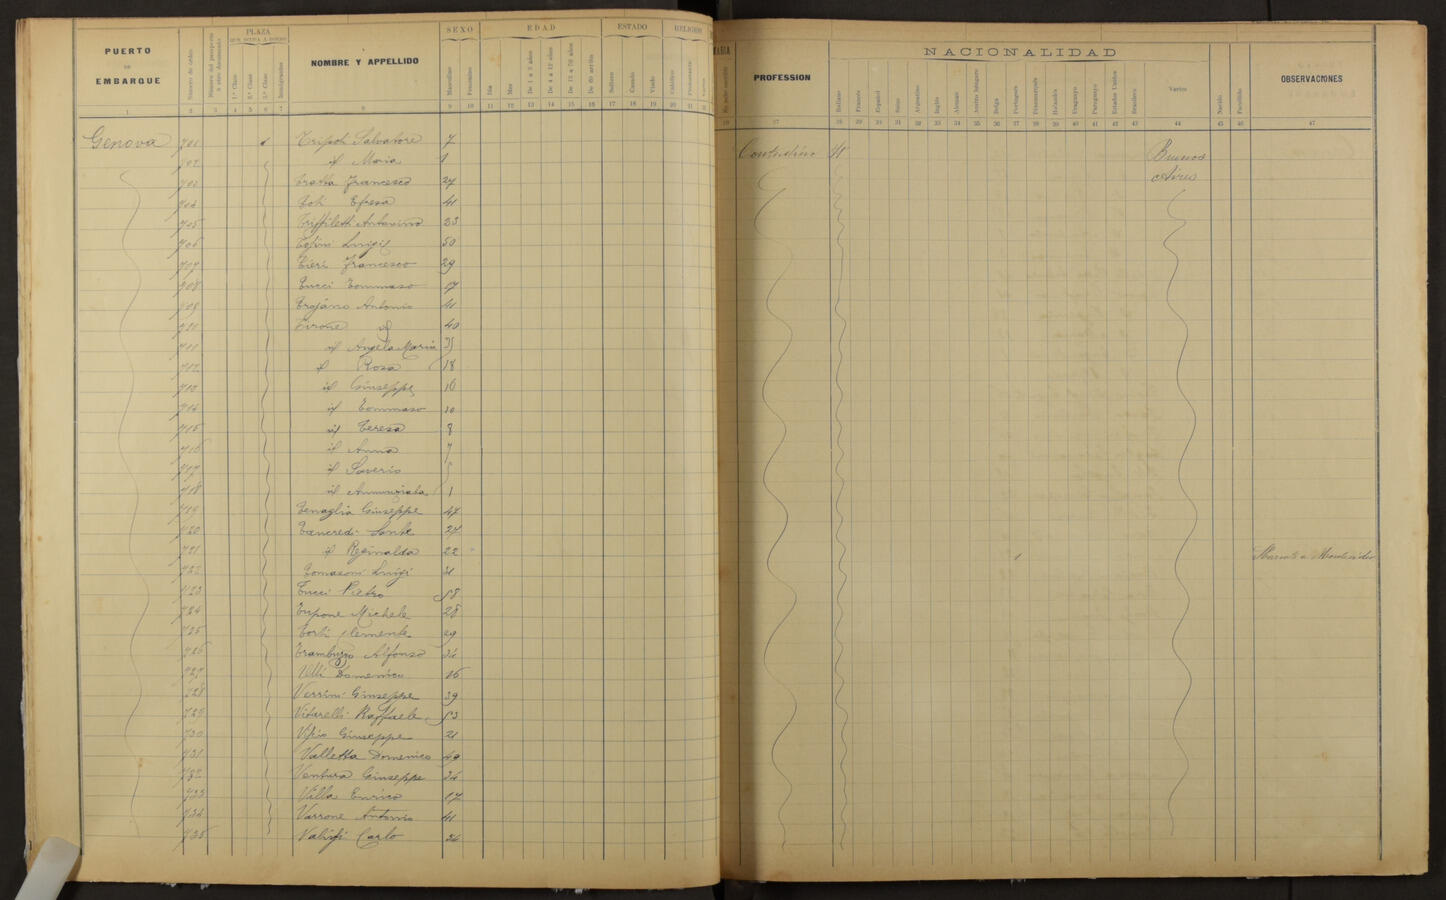 PUERTO DE EMBARQUE
Número de orden
Número del pasaporte ú otro documento
PLAZA
QUE OCUPA A BORDO
1.ª Clase
2.ª Clase
3.ª Clase
Inmigrantes
NOMBRE Y APPELLIDO
SEXO
Masculino
Femenino
EDAD
Dia
Mes
De 1 a 3 años
De 4 a 12 años
De 13 a 70 años
De 60 arriba
ESTADO
Soltero
Casado
Viudo
RELIGION
Católico
Protestante
PROFESSION
NACIONALIDAD
Italiano
Francés
Español
Suizo
Argentino
Inglés
Alemán
Austro Húngaro
Belga
Portugués
Dinamarqués
Holandés
Uruguayo
Paraguayo
Estados Unidos
Brasilero
Varios
Nacido
Fallecido
OBSERVACIONES
1 2 3 4 5 6 7 8 9 10 11 12 13 14 15 16 17 18 19 20 21 27 28 29 30 31 32 33 34 35 36 37 38 39 40 41 42 43 44 45 46 47
Genova 701 1 Tripoli Salvatore 7 Contadino Buenos
702 id Maria 1 Aires
703 Trotta Francesco 27
704 Toti Efresa 41
705 Triffiletti Antonino 33
706 Tofini Luigi 50
707 Tieri Francesco 29
708 Tucci Tommaso 17
709 Trojano Antonio 41
Tirone id 40
711 id Angela Maria 35
712 id Rosa 18
713 id Giuseppe 16
714 id Tommaso 10
715 id Teresa 8
716 id Anna 7
717 id Saverio 5
718 id Annunziata 1
719 Tenaglia Giuseppe 47
720 Tancredi Sante 27
721 id Reginalda 22 1 Montevideo
722 Tomasoni Luigi 31
723 Tucci Pietro 58
724 Tupone Michele 28
725 Torti Clemente 29
726 Tramburro Alfonso 34
727 Ulli Domenico 16
728 Verrini Giuseppe 39
729 Vitarelli Raffaele 53
730 Giuseppe 21
731 Valletta Domenico 49
732 Ventura Giuseppe 34
733 Villa Enrico 17
734 Varrone Antonio 41
735 Carlo 34